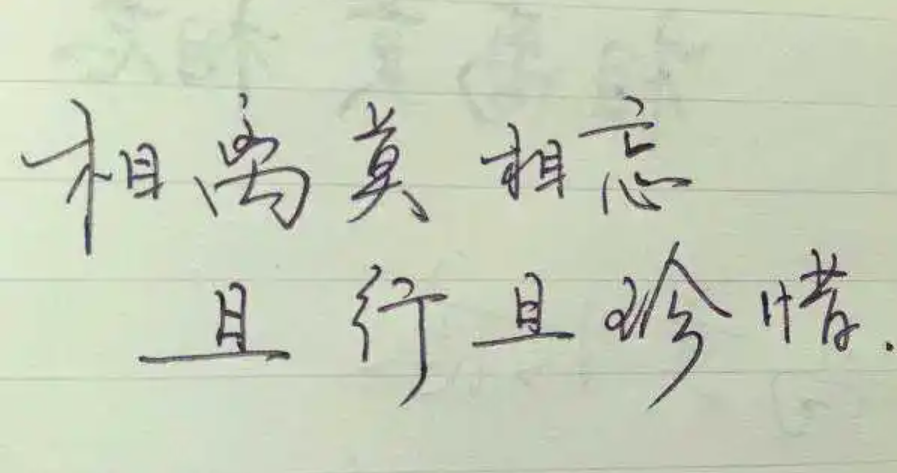 相离莫相忘
且行且珍惜.